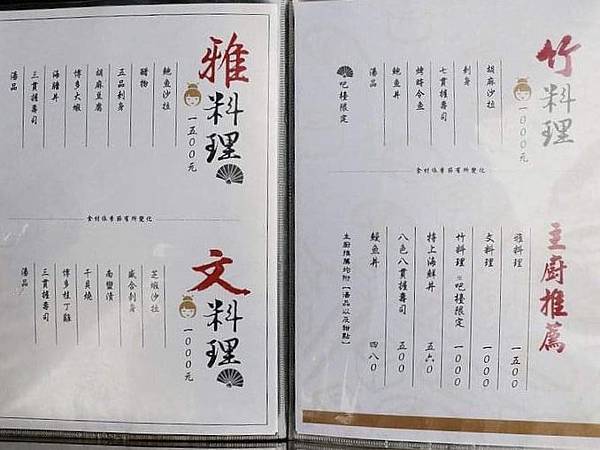 竹料理
一〇〇〇元
胡麻沙拉
刺身
七貫握壽司
烤時令魚
鮑魚丼
湯品
吧檯限定
食材依季節有所變化
主廚推薦
雅料理 一五〇〇
文料理 一〇〇〇
竹料理 吧檯限定 一〇〇〇
特上海鮮丼 五六〇
八色八貫握壽司 五〇〇
鰻魚丼 四八〇
主廚推薦均附【湯品以及甜點】
雅料理
一五〇〇元
鮑魚沙拉
醋物
五品刺身
胡麻豆腐
博多大蝦
海膽丼
三貫握壽司
湯品
食材依季節有所變化
文料理
一〇〇〇元
芝蝦沙拉
盛合刺身
南蠻漬
干貝燒
博多桂丁雞
三貫握壽司
湯品